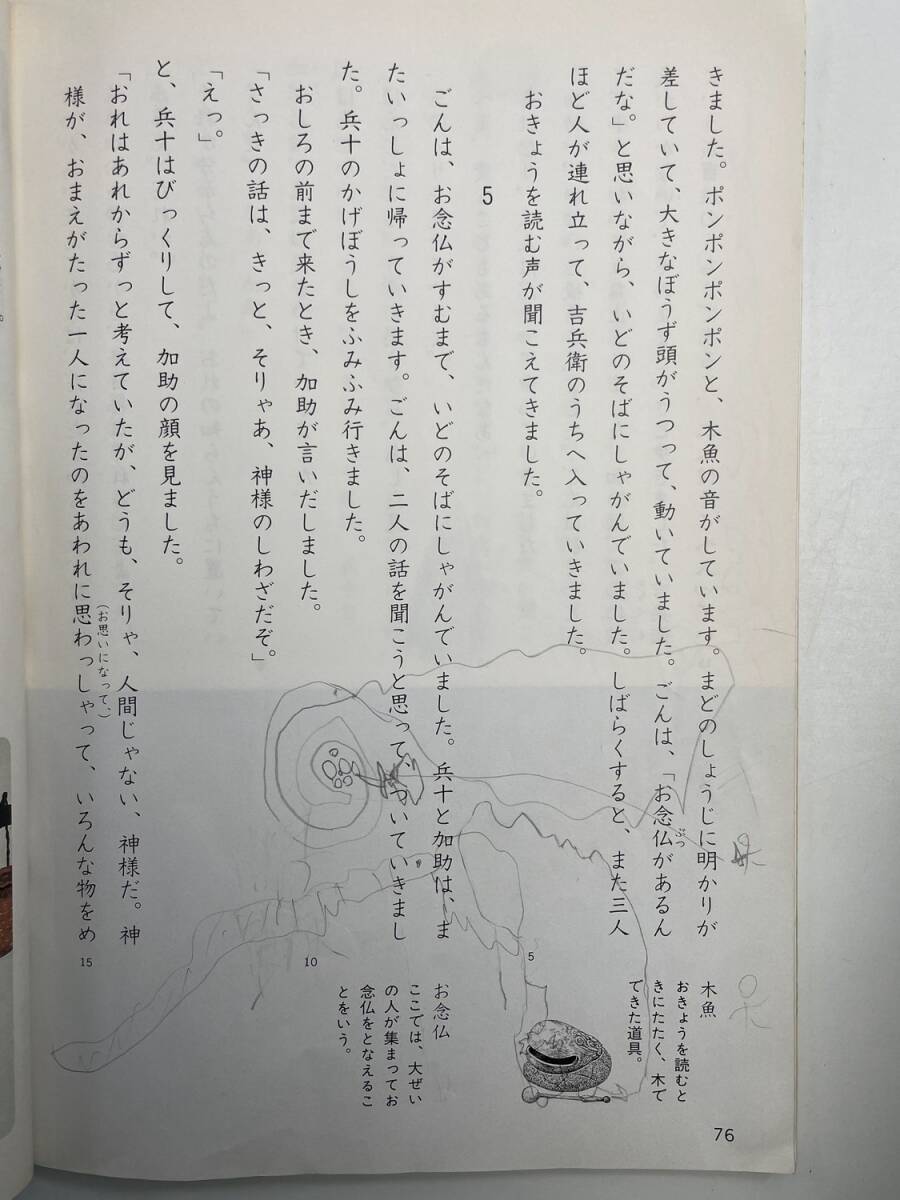 きました。ポンポンポンポンと、木魚の音がしています。まどのしょうじに明かりが
差していて、大きなぼうず頭がうつって、動いていました。ごんは、「お念仏があるん
ぶつ
だな。」と思いながら、いどのそばにしゃがんでいました。しばらくすると、また三人
ほど人が連れ立って、吉兵衛のうちへ入っていきました。
おきょうを読む声が聞こえてきました。
5
ごんは、お念仏がすむまで、いどのそばにしゃがんでいました。兵十と加助は、ま
たいっしょに帰っていきます。ごんは、二人の話を聞こうと思って、ついていきまし
た。兵十のかげぼうしをふみふみ行きました。
おしろの前まで来たとき、加助が言いだしました。
「さっきの話は、きっと、そりゃあ、神様のしわざだぞ。」
「えっ。」
と、兵十はびっくりして、加助の顔を見ました。
「おれはあれからずっと考えていたが、どうも、そりゃ、人間じゃない、神様だ。神
様が、おまえがたった一人になったのをあわれに思わっしゃって、いろんな物をめ
(お思いになって、)
5
10
15
木魚
おきょうを読むと
きにたたく、木で
できた道具。
お念仏
ここでは、大ぜい
の人が集まってお
念仏をとなえるこ
とをいう。
76